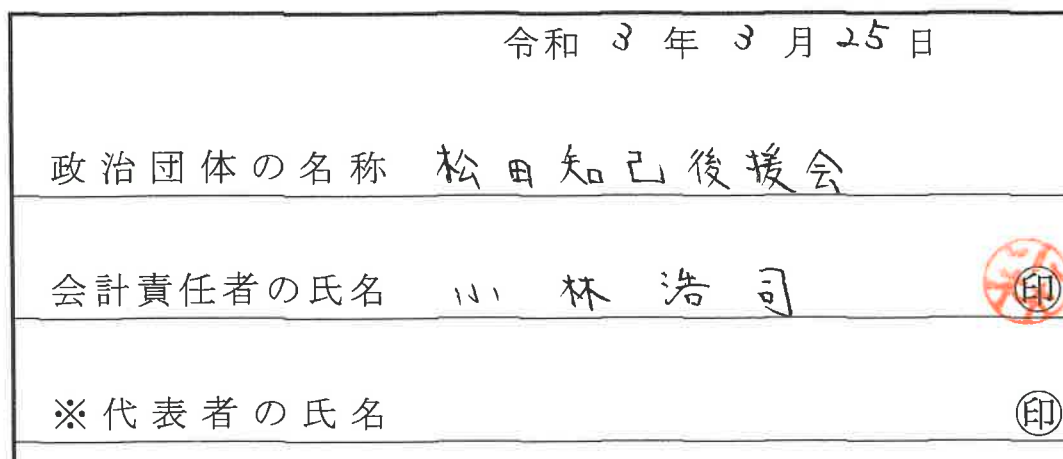 令和 3 年 3 月 25 日
政治団体の名称 松田知己後援会
会計責任者の氏名 小林浩司 印
※代表者の氏名 印